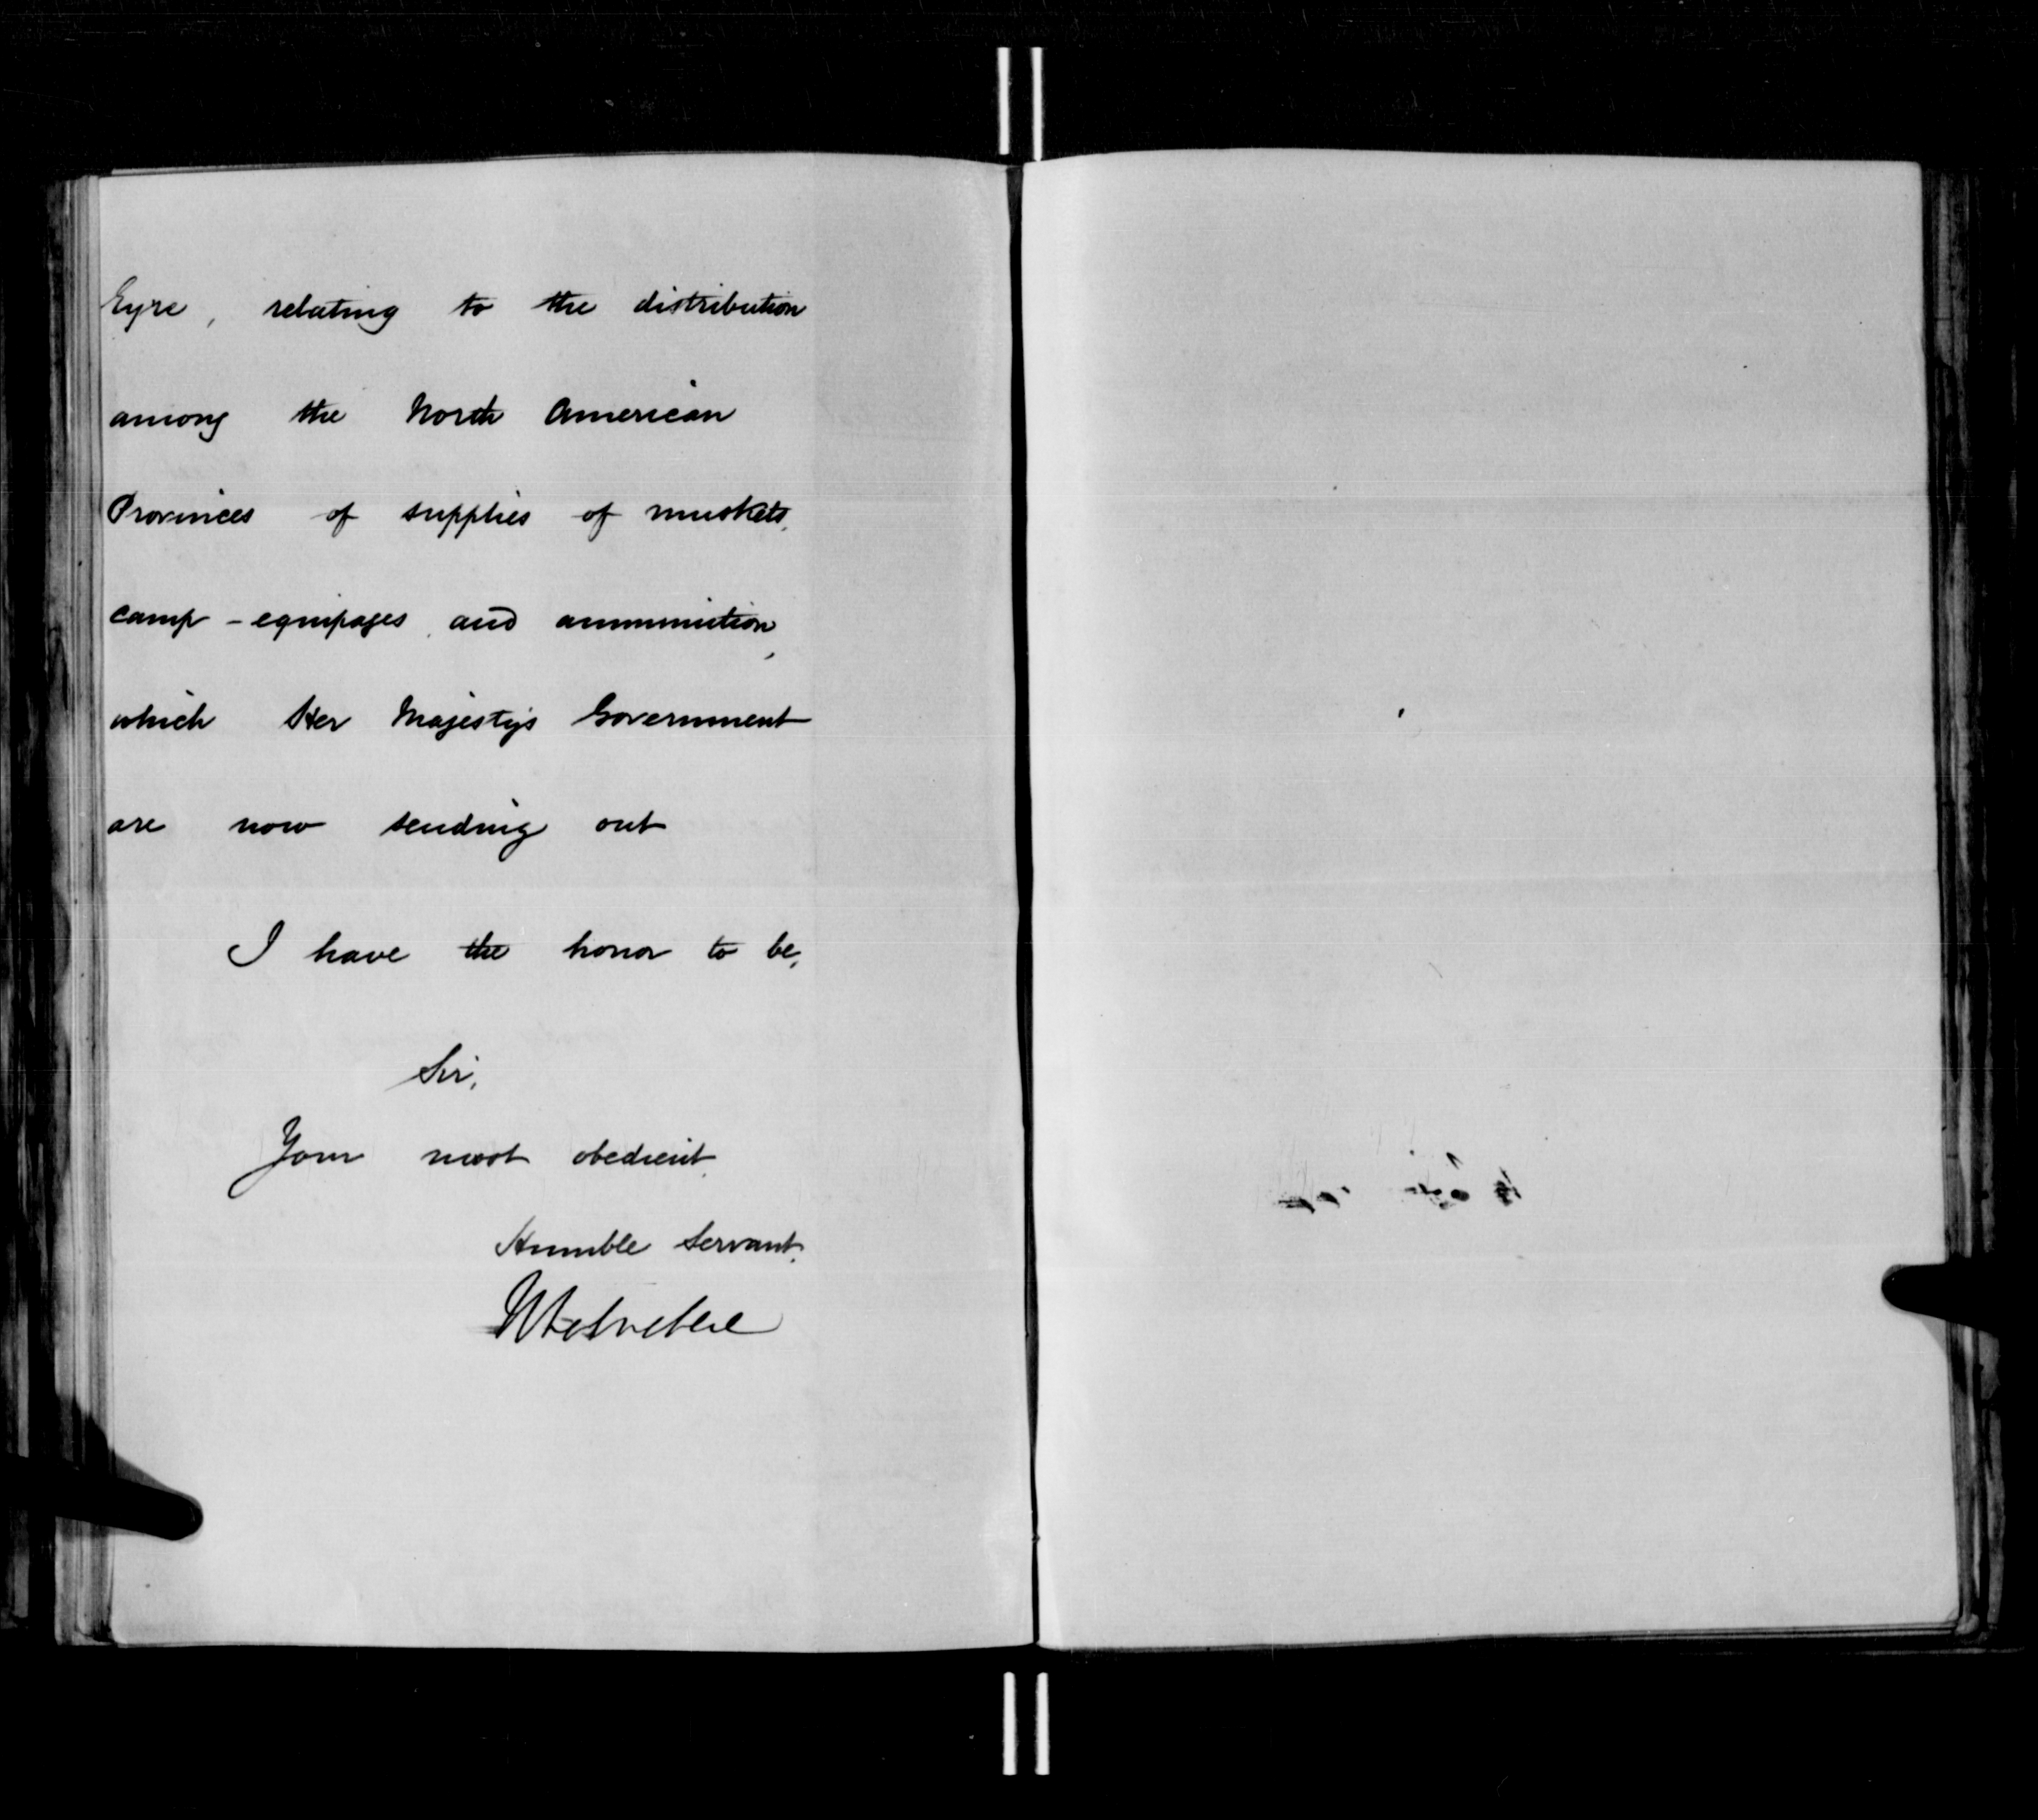 Eyre, relating to the distribution
among the North American
Provinces of supplies of muskets,
camp-equipages, and ammunition,
which Her Majesty's Government
are now sending out
I have the honor to be,
Sir,
Your most obedient
Humble Servant.